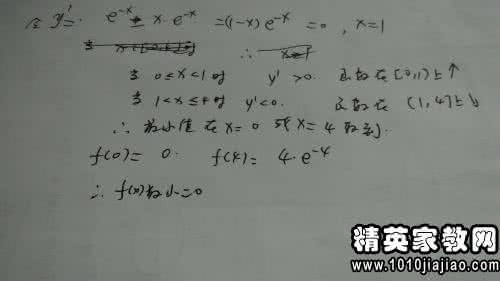 令 y′= e^{-x} - x·e^{-x} =(1-x)e^{-x} =0 , x=1
当 ∴ x=1
当 0≤x<1 时 y′>0. 函数在[0,1)上↑
当 1<x≤4 时 y′<0. 函数在 (1,4]上↓
∴ 最小值在 x=0 或 x=4 取到.
f(0)= 0. f(4)= 4·e^{-4}
∴ f(x)最小=0
精英家教网
www.1010jiajiao.com